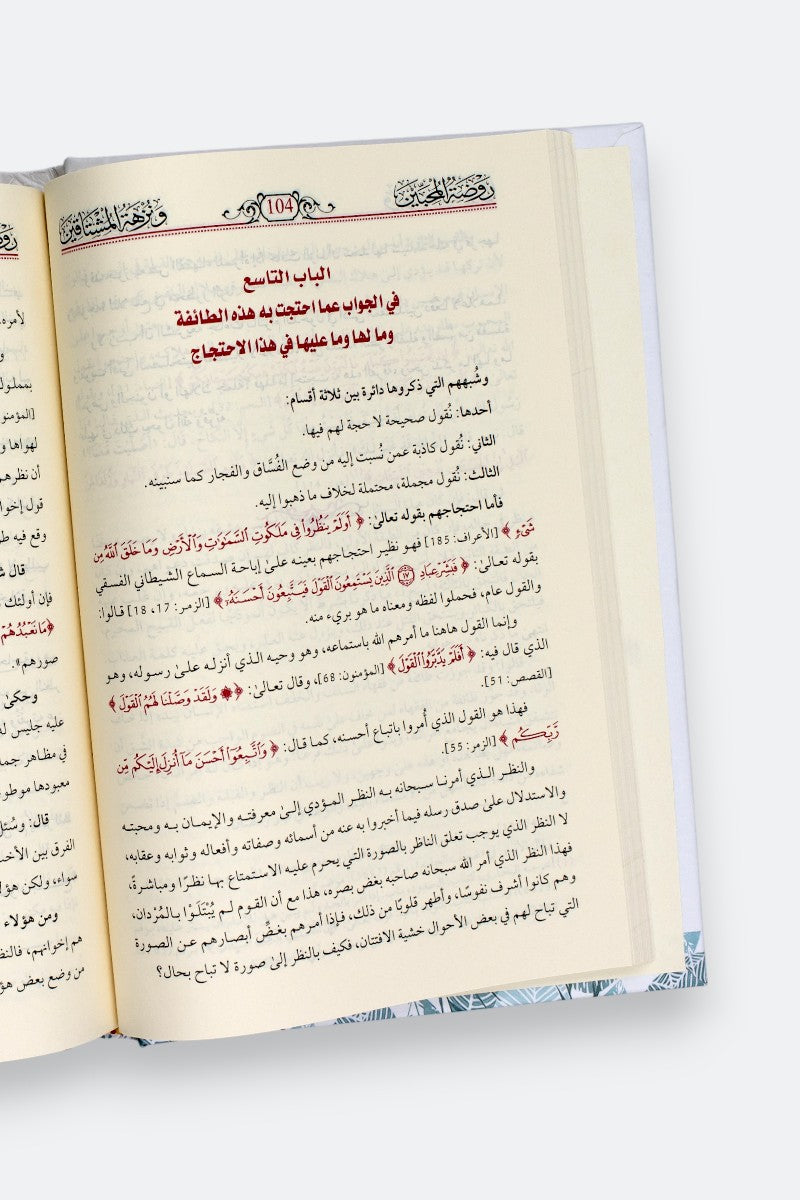 روضة المحبين
104
ونزهة المشتاقين
الباب التاسع
في الجواب عما احتجت به هذه الطائفة
وما لها وما عليها في هذا الاحتجاج
وشُبههم التي ذكروها دائرة بين ثلاثة أقسام:
أحدها: نُقول صحيحة لا حجة لهم فيها.
الثاني: نُقول كاذبة عمن نُسبت إليه من وضع الفُسَّاق والفجار كما سنبينه.
الثالث: نُقول مجملة، محتملة لخلاف ما ذهبوا إليه.
فأما احتجاجهم بقوله تعالىٰ: ﴿ أَوَلَمْ يَنظُرُوا۟ فِى مَلَكُوتِ ٱلسَّمَـٰوَٰتِ وَٱلْأَرْضِ وَمَا خَلَقَ ٱللَّهُ مِن
شَىْءٍ ﴾ [الأعراف: 185] فهو نظير احتجاجهم بعينه علىٰ إباحة السماع الشيطاني الفسقي
بقوله تعالىٰ: ﴿ فَبَشِّرْ عِبَادِ ١٧ ٱلَّذِينَ يَسْتَمِعُونَ ٱلْقَوْلَ فَيَتَّبِعُونَ أَحْسَنَهُۥٓ ﴾ [الزمر: 17، 18] قالوا:
والقول عام، فحملوا لفظه ومعناه ما هو بريء منه.
وإنما القول هاهنا ما أمرهم الله باستماعه، وهو وحيه الذي أنزله علىٰ رسوله، وهو
الذي قال فيه: ﴿ أَفَلَمْ يَدَّبَّرُوا۟ ٱلْقَوْلَ ﴾ [المؤمنون: 68]، وقال تعالىٰ: ﴿ ۞ وَلَقَدْ وَصَّلْنَا لَهُمُ ٱلْقَوْلَ ﴾
[القصص: 51].
فهذا هو القول الذي أُمروا باتباع أحسنه، كما قال: ﴿ وَٱتَّبِعُوٓا۟ أَحْسَنَ مَآ أُنزِلَ إِلَيْكُم مِّن
رَّبِّكُم ﴾ [الزمر: 55].
والنظر الذي أمرنا سبحانه به النظر المؤدي إلىٰ معرفته والإيمان به ومحبته
والاستدلال علىٰ صدق رسله فيما أخبروا به عنه من أسمائه وصفاته وأفعاله وثوابه وعقابه،
لا النظر الذي يوجب تعلق الناظر بالصورة التي يحرم عليه الاستمتاع بها نظرًا ومباشرةً،
فهذا النظر الذي أمر الله سبحانه صاحبه بغض بصره، هذا مع أن القوم لم يُبْتَلَوْا بالمُرْدان،
وهم كانوا أشرف نفوسًا، وأطهر قلوبًا من ذلك، فإذا أمرهم بغضِّ أبصارهم عن الصورة
التي تباح لهم في بعض الأحوال خشية الافتتان، فكيف بالنظر إلىٰ صورة لا تباح بحال؟
لأمره،
بمملول
[المؤمنو
لهواها و
أن نظرهم
قول إخوا
وقع فيه طو
قال ش
فإن أولئك
﴿مَا نَعْبُدُهُمْ
صورهم».
وحكىٰ
عليه جليس له
في مظاهر جما
معبودها موطو
قال: وسُئل
الفرق بين الأخـ
سواء، ولكن هؤلا
ومن هؤلاء
هم إخوانهم، فالنظ
من وضع بعض هؤ